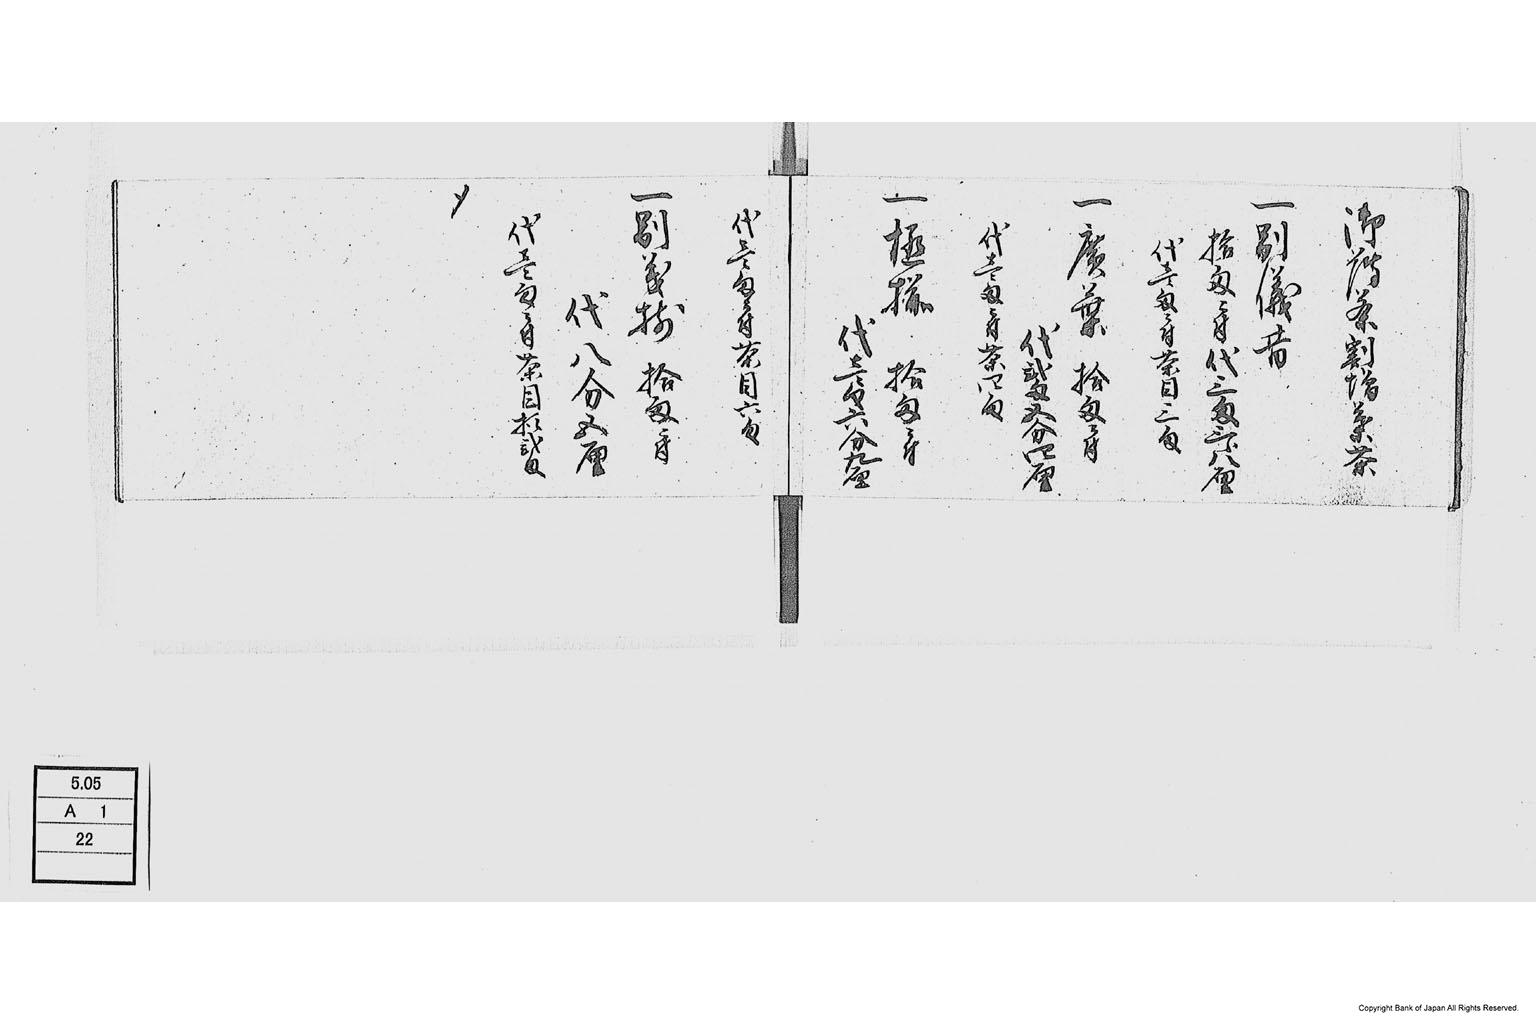 御薄茶割増葉茶
一別儀昔
拾匁ニ付代三匁三分八厘
代壱匁ニ付茶目三匁
一廣葉 拾匁ニ付
代弐匁五分四厘
代壱匁ニ付茶四匁
一極揃 拾匁ニ付
代壱匁六分九厘
代壱匁ニ付茶目六匁
一別義揃 拾匁ニ付
代八分五厘
代壱匁ニ付茶目拾弐匁
〆
5.05
A 1
22
Copyright Bank of Japan All Rights Reserved.